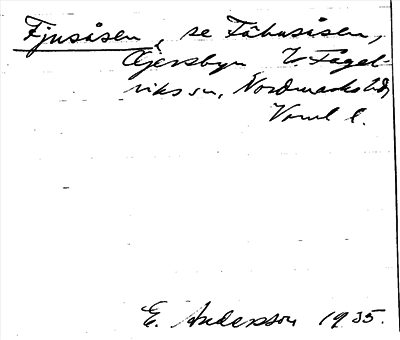 Fjusåsen, se Fähusåsen,
Gjersbyn V. Fågel-
viks sn, Nordmarks hd,
Vrml l.
E. Andersson 1935.